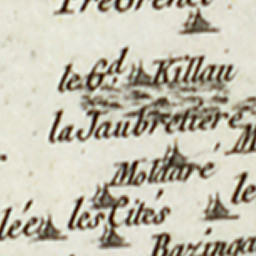 le G.d Killau
la Jaubretiere
Moldaré
le
les Cités
lée
Bazinga